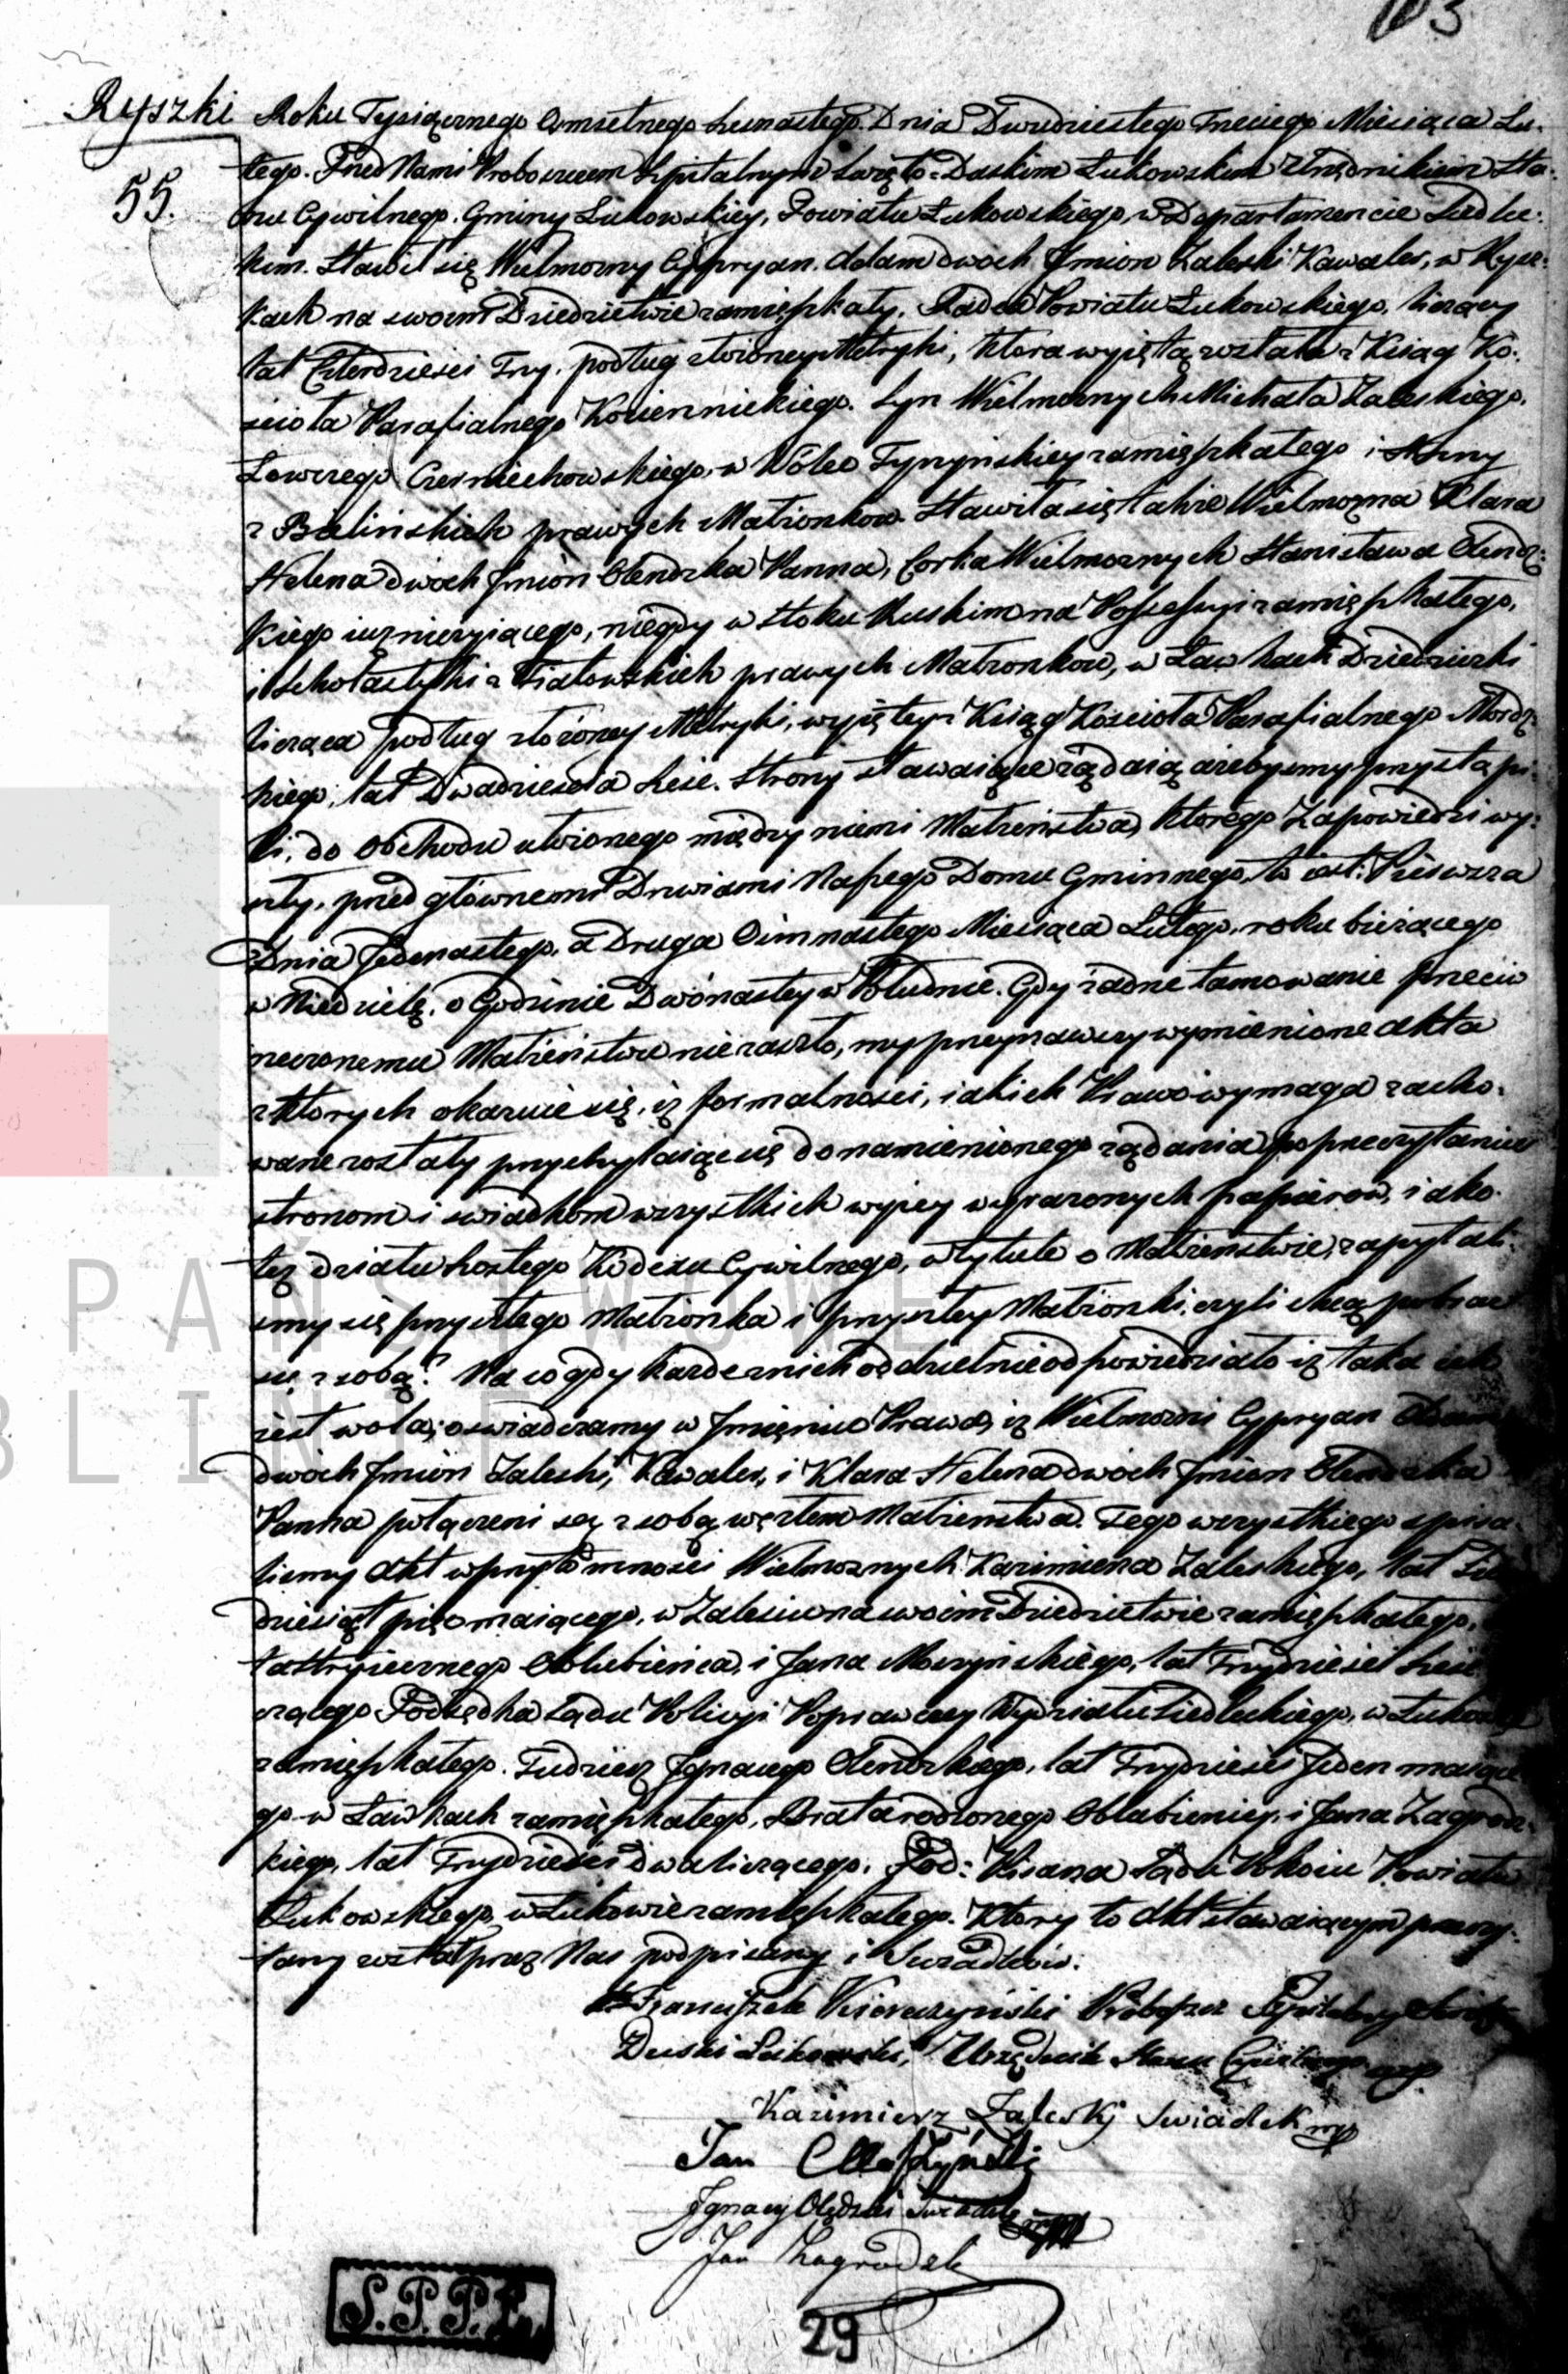 103
Ryszki
55.
Roku Tysiącznego Osmsetnego Szesnastego Dnia Dwudziestego Trzeciego Miesiąca Lu-
tego. Przed Nami Proboszczem Szpitalnym Swięto-Duskim Łukowskim Urzędnikiem Sta-
nu Cywilnego. Gminy Łukowskiey, Powiatu Łukowskiego, w Departamencie Siedlec-
kim. Stawił się Wielmozny Cypryan Adam dwoch Jmion Zaleski Kawaler, w Rysz-
kach na swoim Dziedzictwie zamięszkały, Radca Powiatu Łukowskiego, liczący
lat Czterdzieści Trzy, podług złożoney Metryki, ktora wyiętą została z Ksiąg Ko-
scioła Parafialnego Koziennickiego. Syn Wielmoznych Michała Zaleskiego,
Łowczego Czerniechowskiego, w Wólce Tyrzyńskiey zamięszkałego i Anny
z Bielińskich prawych Małżonkow. Stawiła się także Wielmozna Klara
Helena dwoch Jmion Olendzka Panna, Corka Wielmoznych Stanisława Olendz-
kiego iuz nieżyiącego, niegdy w Stoku Ruskim na Possessyi zamięszkałego,
i Scholastyki z Fiałowskich prawych Małżonkow, w Ławkach Dziedziczki
licząca podług złożoney Metryki, wyiętey z Ksiąg Kościoła Parafialnego Mordz-
kiego, lat Dwadziescia Szesc. Strony stawaiące żądaią ażebysmy przystąpi-
li, do obchodu ułożonego między niemi Małżeństwa, ktorego Zapowiedzi wy-
szły, przed głównemi Drzwiami Naszego Domu Gminnego, to iest: Pierwsza
Dnia Jedenastego, a Druga Osimnastego Miesiąca Lutego, roku bieżącego
w Niedzielę, o Godzinie Dwónastey w Południe. Gdy żadne tamowanie przeciw
rzeczonemu Małżeństwu nie zaszło, my przeyrzawszy wymienione Akta
z ktorych okazuie się, iż formalności, iakich Prawo wymaga zacho-
wane zostały przychylaiąc się do namienionego żądania po przeczytaniu
stronom i swiadkom wszystkich wyżey wyrażonych papierow, iako
też działu szostego Kodexu Cywilnego, w tytule o Małżenstwie, zapytali-
smy się przyszłego Małżonka i przyszłey Małżonki, czyli chcą pobrac
się z sobą? Na co gdy każde z nich oddzielnie odpowiedziało iż taka ich
iest wola; oswiadczamy w Jmieniu Prawa, iż Wielmozni Cypryan Adam
dwoch Jmion Zaleski, Kawaler, i Klara Helena dwoch Jmion Olendzka
Panna połączeni są z sobą węzłem Małżenstwa. Tego wszystkiego spisa-
lismy Akt w przytomności Wielmoznych Kazimierza Zaleskiego, lat
dziesiąt pięc maiącego, w Zalesiu na swoim Dziedzictwie zamięszkałego,
stryiecznego Oblubieńca, i Jana Moszyńskiego, lat Trzydzieści Szesc
czącego Podsędka Sądu Policyi Poprawczey Wydziału Siedleckiego, w Łukowie
zamięszkałego. Tudzież Jgnacego Olendzkiego, lat Trzydziesci Jeden maiące-
go w Ławkach zamięszkałego, Brata rodzonego Oblubienicy, i Jana Zagrodz-
kiego, lat Trzydziesci dwa liczącego, Pod: Pisarza Sądu Pokoiu Powiatu
Łukowskiego, w Łukowie zamięszkałego. Ktory to Akt stawaiącym przeczy-
tany został przez Nas podpisany i Swiadkow.
Franciszek Proboszcz Szpitalny Swięto
Duski Łukowski, Urzędnik Stanu Cywilnego mp.
Kazimierz Zaleskj Swiadek mp
Jan Moszyński
Jgnacy Olędzki Swiadek mp
Jan Zagrodzk
S.P.P.Ł.
29
PAŃSTWOWE
BLINIE